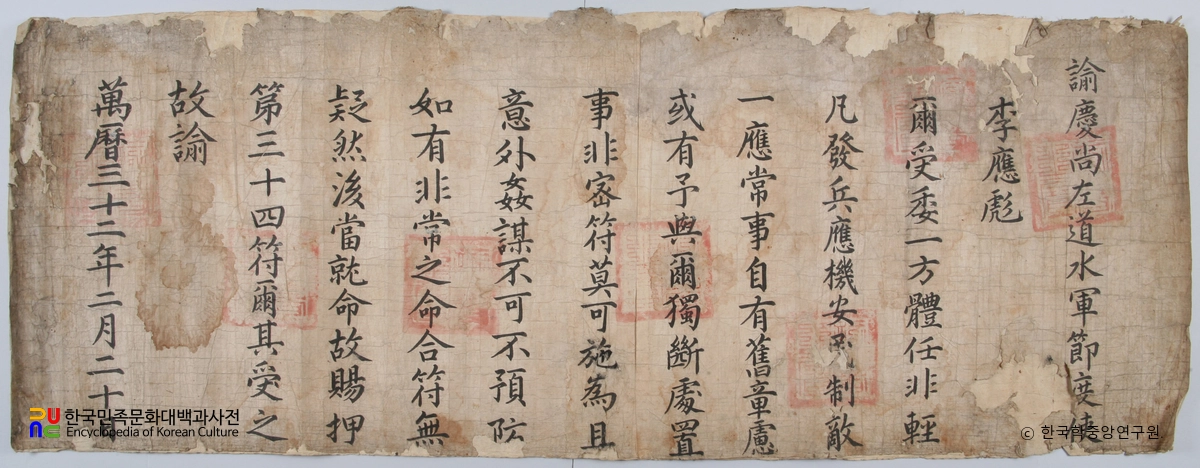 諭慶尚左道水軍節度使
李應彪
爾受委一方體任非輕
凡發兵應機安民制敵
一應常事自有舊章慮
或有予與爾獨斷處置
事非密符莫可施為且
意外姦謀不可不預防
如有非常之命合符無
疑然後當就命故賜押
第三十四符爾其受之
故諭
萬曆三十二年二月二十
한국민족문화대백과사전
Encyclopedia of Korean Culture
© 한국학중앙연구원